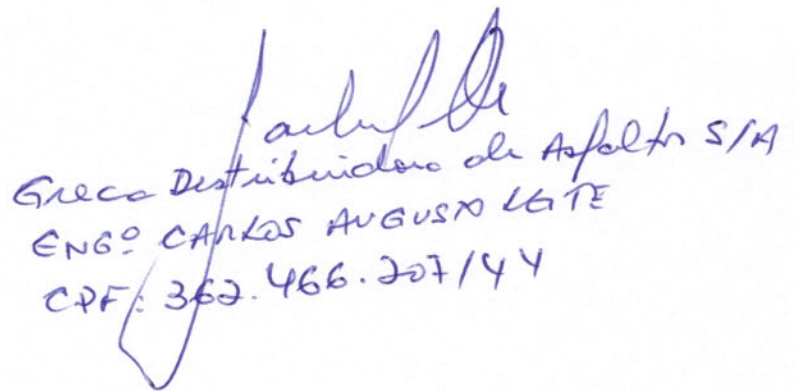 Greca Distribuidora de Asfaltos S/A
ENGº CARLOS AUGUSTO LEITE
CPF: 362.466.207/44